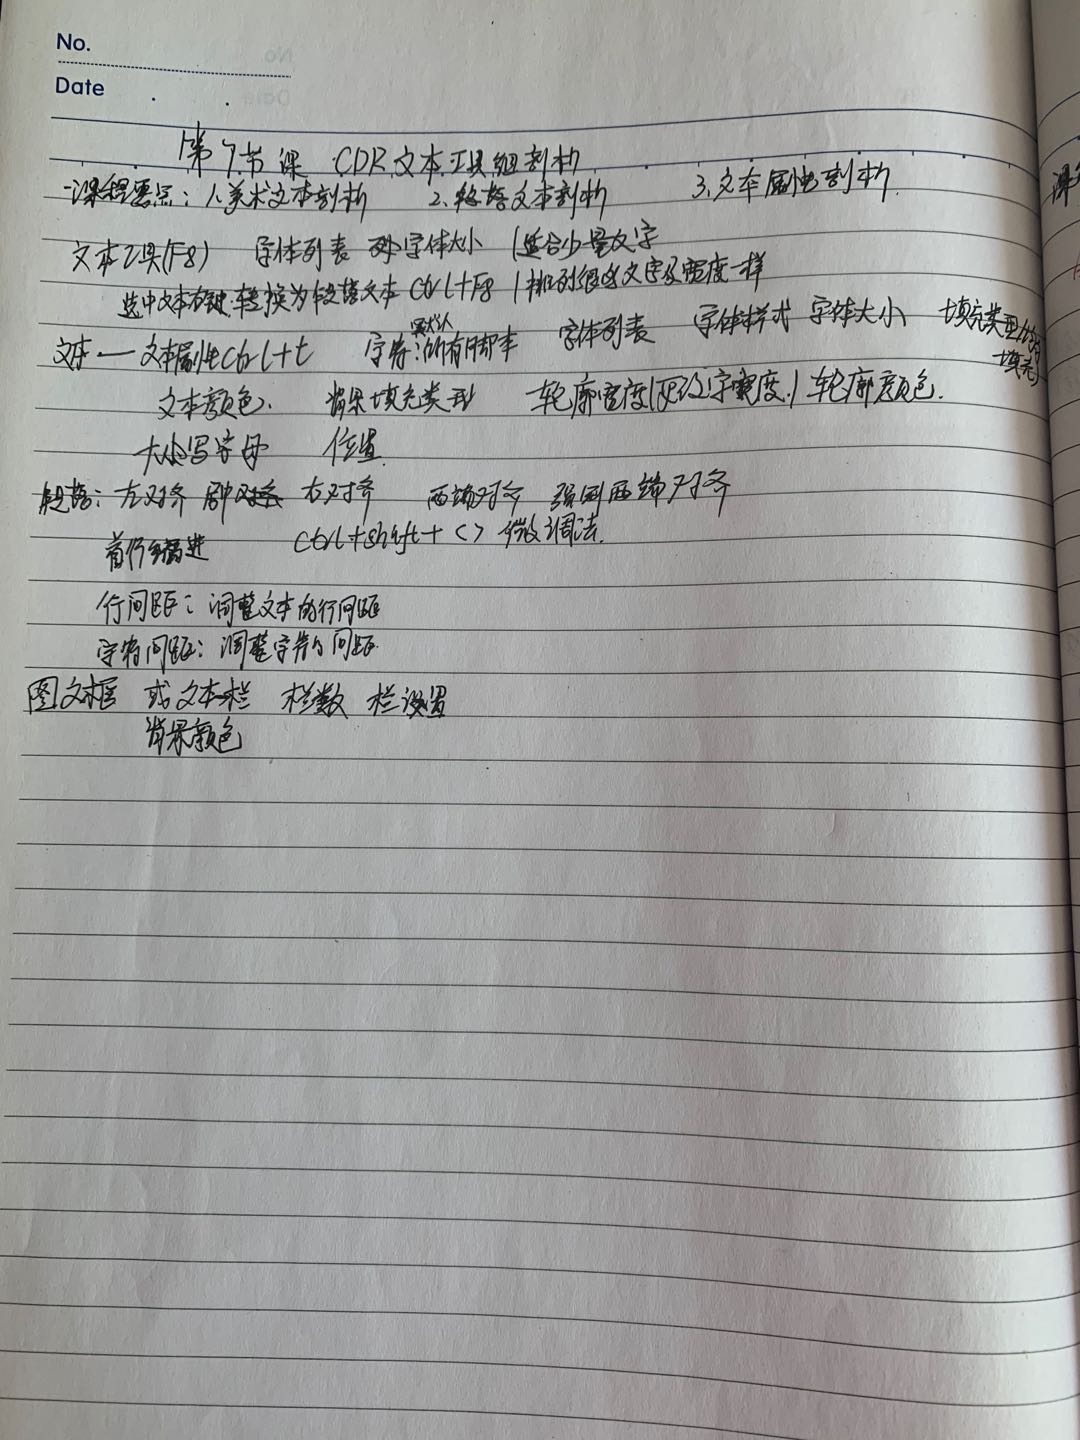 No.
Date
第7节课 CDR文本工具组剖析
一课程要点：1.美术文本剖析 2.段落文本剖析 3.文本属性剖析
文本工具(F8) 字体列表 字体大小 (适合少量文字
选中文本右键.转换为段落文本 Ctrl+F8 (排列很多文字及宽度一样
文本——文本属性Ctrl+t 字符：所有脚本 字体列表 字体样式 字体大小 填充类型
默认
填充
文本颜色. 背景填充类型 轮廓宽度 字宽度) 轮廓颜色.
大小写字母 位置
段落：左对齐 居中对齐 右对齐 两端对齐 强制两端对齐
首行缩进 Ctrl+shift+<> 微调法.
行间距：调整文本的行间距
字符间距：调整字符的间距.
图文框 或文本栏 栏数 栏设置
背景颜色